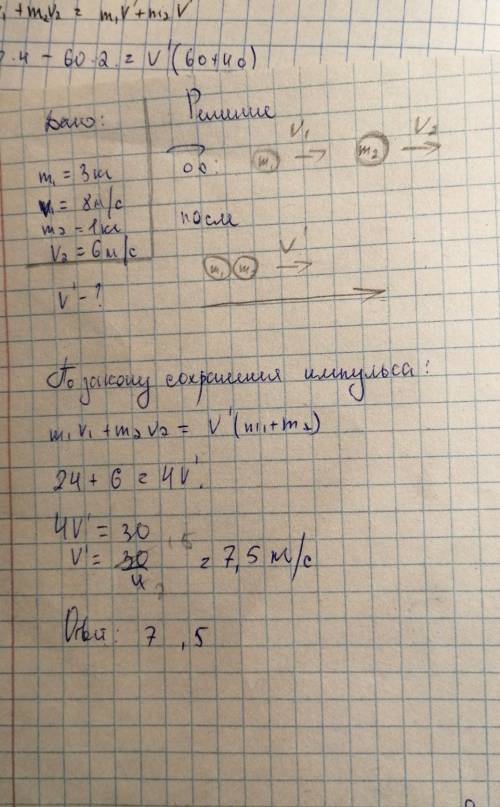 m₂v₂ = m₁v' + m₂ v'
4 - 60·2 = V'(60+40)
Дано:
Решение
m₁ = 3 кг
v₁ = 8 м/с
m₂ = 1 кг
v₂ = 6 м/с
v' - ?
до:
m₁
V₁
m₂
V₂
после
m₁
V'
По закону сохранения импульса:
m₁v₁ + m₂v₂ = V'(m₁+m₂)
24 + 6 = 4V'
4V' = 30
V' = 30/4 = 7,5 м/с
Ответ: 7,5